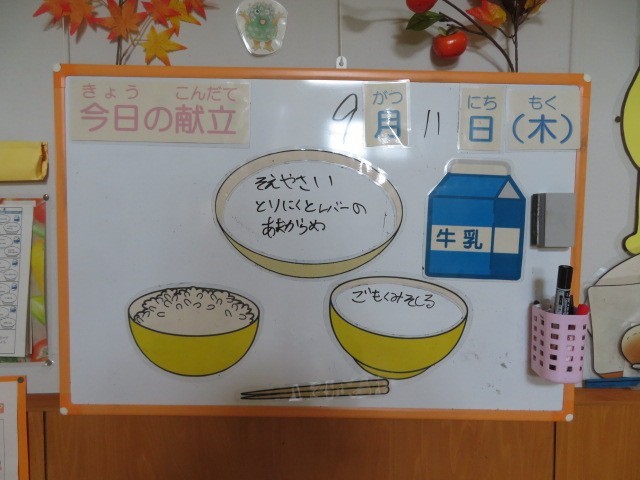 きょう こんだて
今日の献立
9 月 11 日 (木)
がつ にち もく
そえやさい
とりにくとレバーの
あまからめ
牛乳
ごもくみそしる